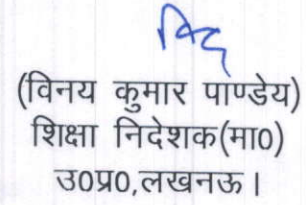 (विनय कुमार पाण्डेय)
शिक्षा निदेशक(मा0)
उ0प्र0,लखनऊ।